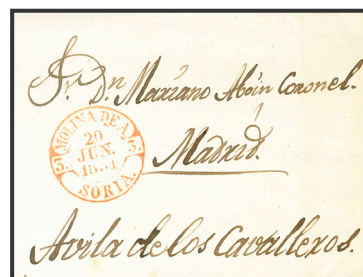 Sr. Dn. Mariano Aboin Coronel.
Madrid.
MOLINA DE A.
3 3
20
JUN.
SORIA.
Avila de los Cavalleros.